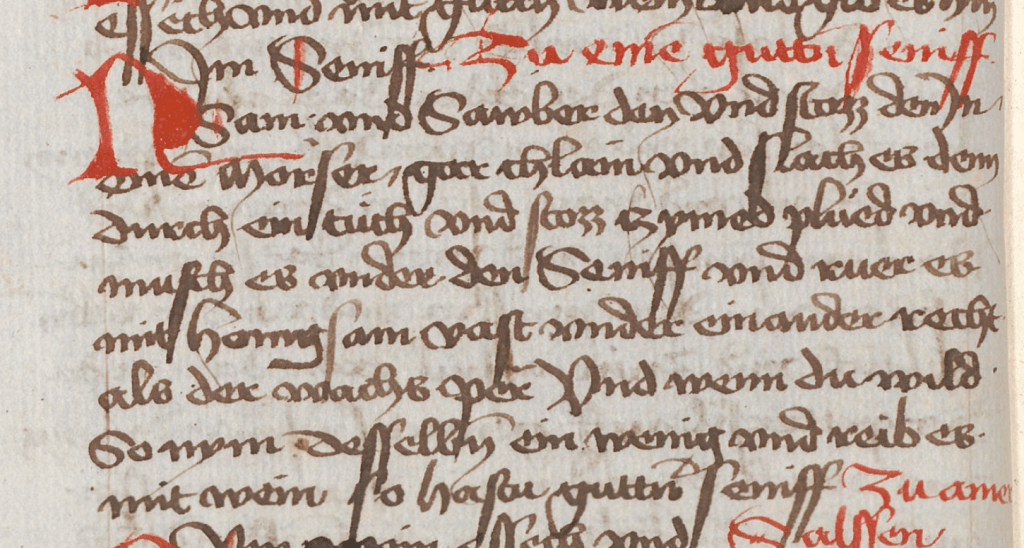 essech vnd mit
Nym Seniff Zu eine gutten seniff
Sam vnd Sawber den vnd stozz den In
eine Morser gar chlain vnd slach es denn
durch ein tuch vnd stozz czymed plued vnd
musch es vnder den Seniff vnd ruer es
mit honigsam vast vnder einander recht
als der wachs per Vnd wenn du wild
So nym desselbn ein wenig vnd reib es
mit wein so hastu guttn seniff Zu ainer
essech vnd Salssen